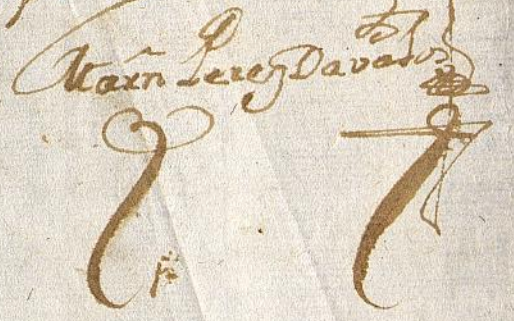 Marñ Perez Davalos